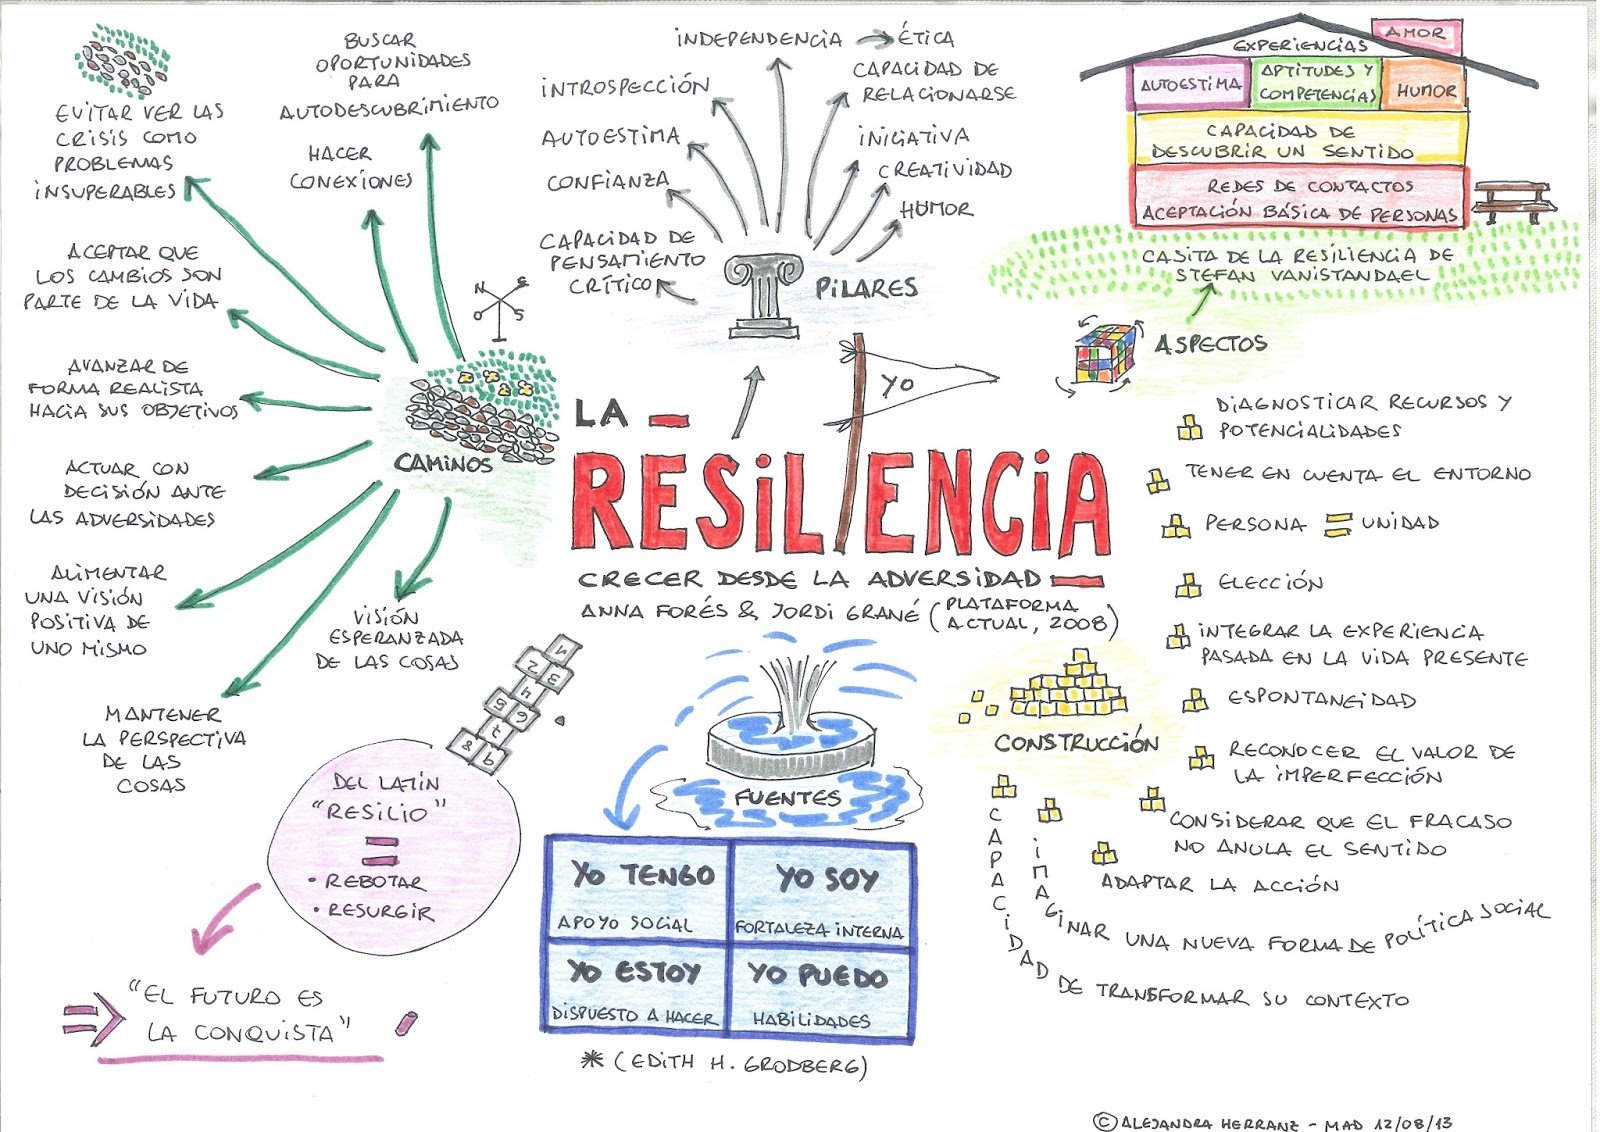 EVITAR VER LAS
CRISIS COMO
PROBLEMAS
INSUPERABLES
BUSCAR
OPORTUNIDADES
PARA
AUTODESCUBRIMIENTO
HACER
CONEXIONES
ACEPTAR QUE
LOS CAMBIOS SON
PARTE DE LA VIDA
AVANZAR DE
FORMA REALISTA
HACIA SUS OBJETIVOS
ACTUAR CON
DECISIÓN ANTE
LAS ADVERSIDADES
ALIMENTAR
UNA VISIÓN
POSITIVA DE
UNO MISMO
MANTENER
LA PERSPECTIVA
DE LAS
COSAS
VISIÓN
ESPERANZADA
DE LAS COSAS
N E
O S
CAMINOS
INDEPENDENCIA
ÉTICA
INTROSPECCIÓN
CAPACIDAD DE
RELACIONARSE
AUTOESTIMA
INICIATIVA
CONFIANZA
CREATIVIDAD
HUMOR
CAPACIDAD DE
PENSAMIENTO
CRÍTICO
PILARES
AMOR
EXPERIENCIAS
AUTOESTIMA
APTITUDES Y
COMPETENCIAS
HUMOR
CAPACIDAD DE
DESCUBRIR UN SENTIDO
REDES DE CONTACTOS
ACEPTACIÓN BÁSICA DE PERSONAS
CASITA DE LA RESILIENCIA DE
STEFAN VANISTANDAEL
ASPECTOS
YO
LA
RESILIENCIA
CRECER DESDE LA ADVERSIDAD
ANNA FORÉS & JORDI GRANÉ (PLATAFORMA
ACTUAL, 2008)
DIAGNOSTICAR RECURSOS Y
POTENCIALIDADES
TENER EN CUENTA EL ENTORNO
PERSONA = UNIDAD
ELECCIÓN
INTEGRAR LA EXPERIENCIA
PASADA EN LA VIDA PRESENTE
ESPONTANEIDAD
RECONOCER EL VALOR DE
LA IMPERFECCIÓN
CONSIDERAR QUE EL FRACASO
NO ANULA EL SENTIDO
ADAPTAR LA ACCIÓN
IMAGINAR UNA NUEVA FORMA DE POLÍTICA SOCIAL
CAPACIDAD DE TRANSFORMAR SU CONTEXTO
CONSTRUCCIÓN
FUENTES
YO TENGO
APOYO SOCIAL
YO SOY
FORTALEZA INTERNA
YO ESTOY
DISPUESTO A HACER
YO PUEDO
HABILIDADES
* (EDITH H. GRODBERG)
1
2
3
4
5
6
7
8
9
DEL LATÍN
"RESILIO"
=
• REBOTAR
• RESURGIR
"EL FUTURO ES
LA CONQUISTA"
© ALEJANDRA HERRANZ - MAD 12/08/13